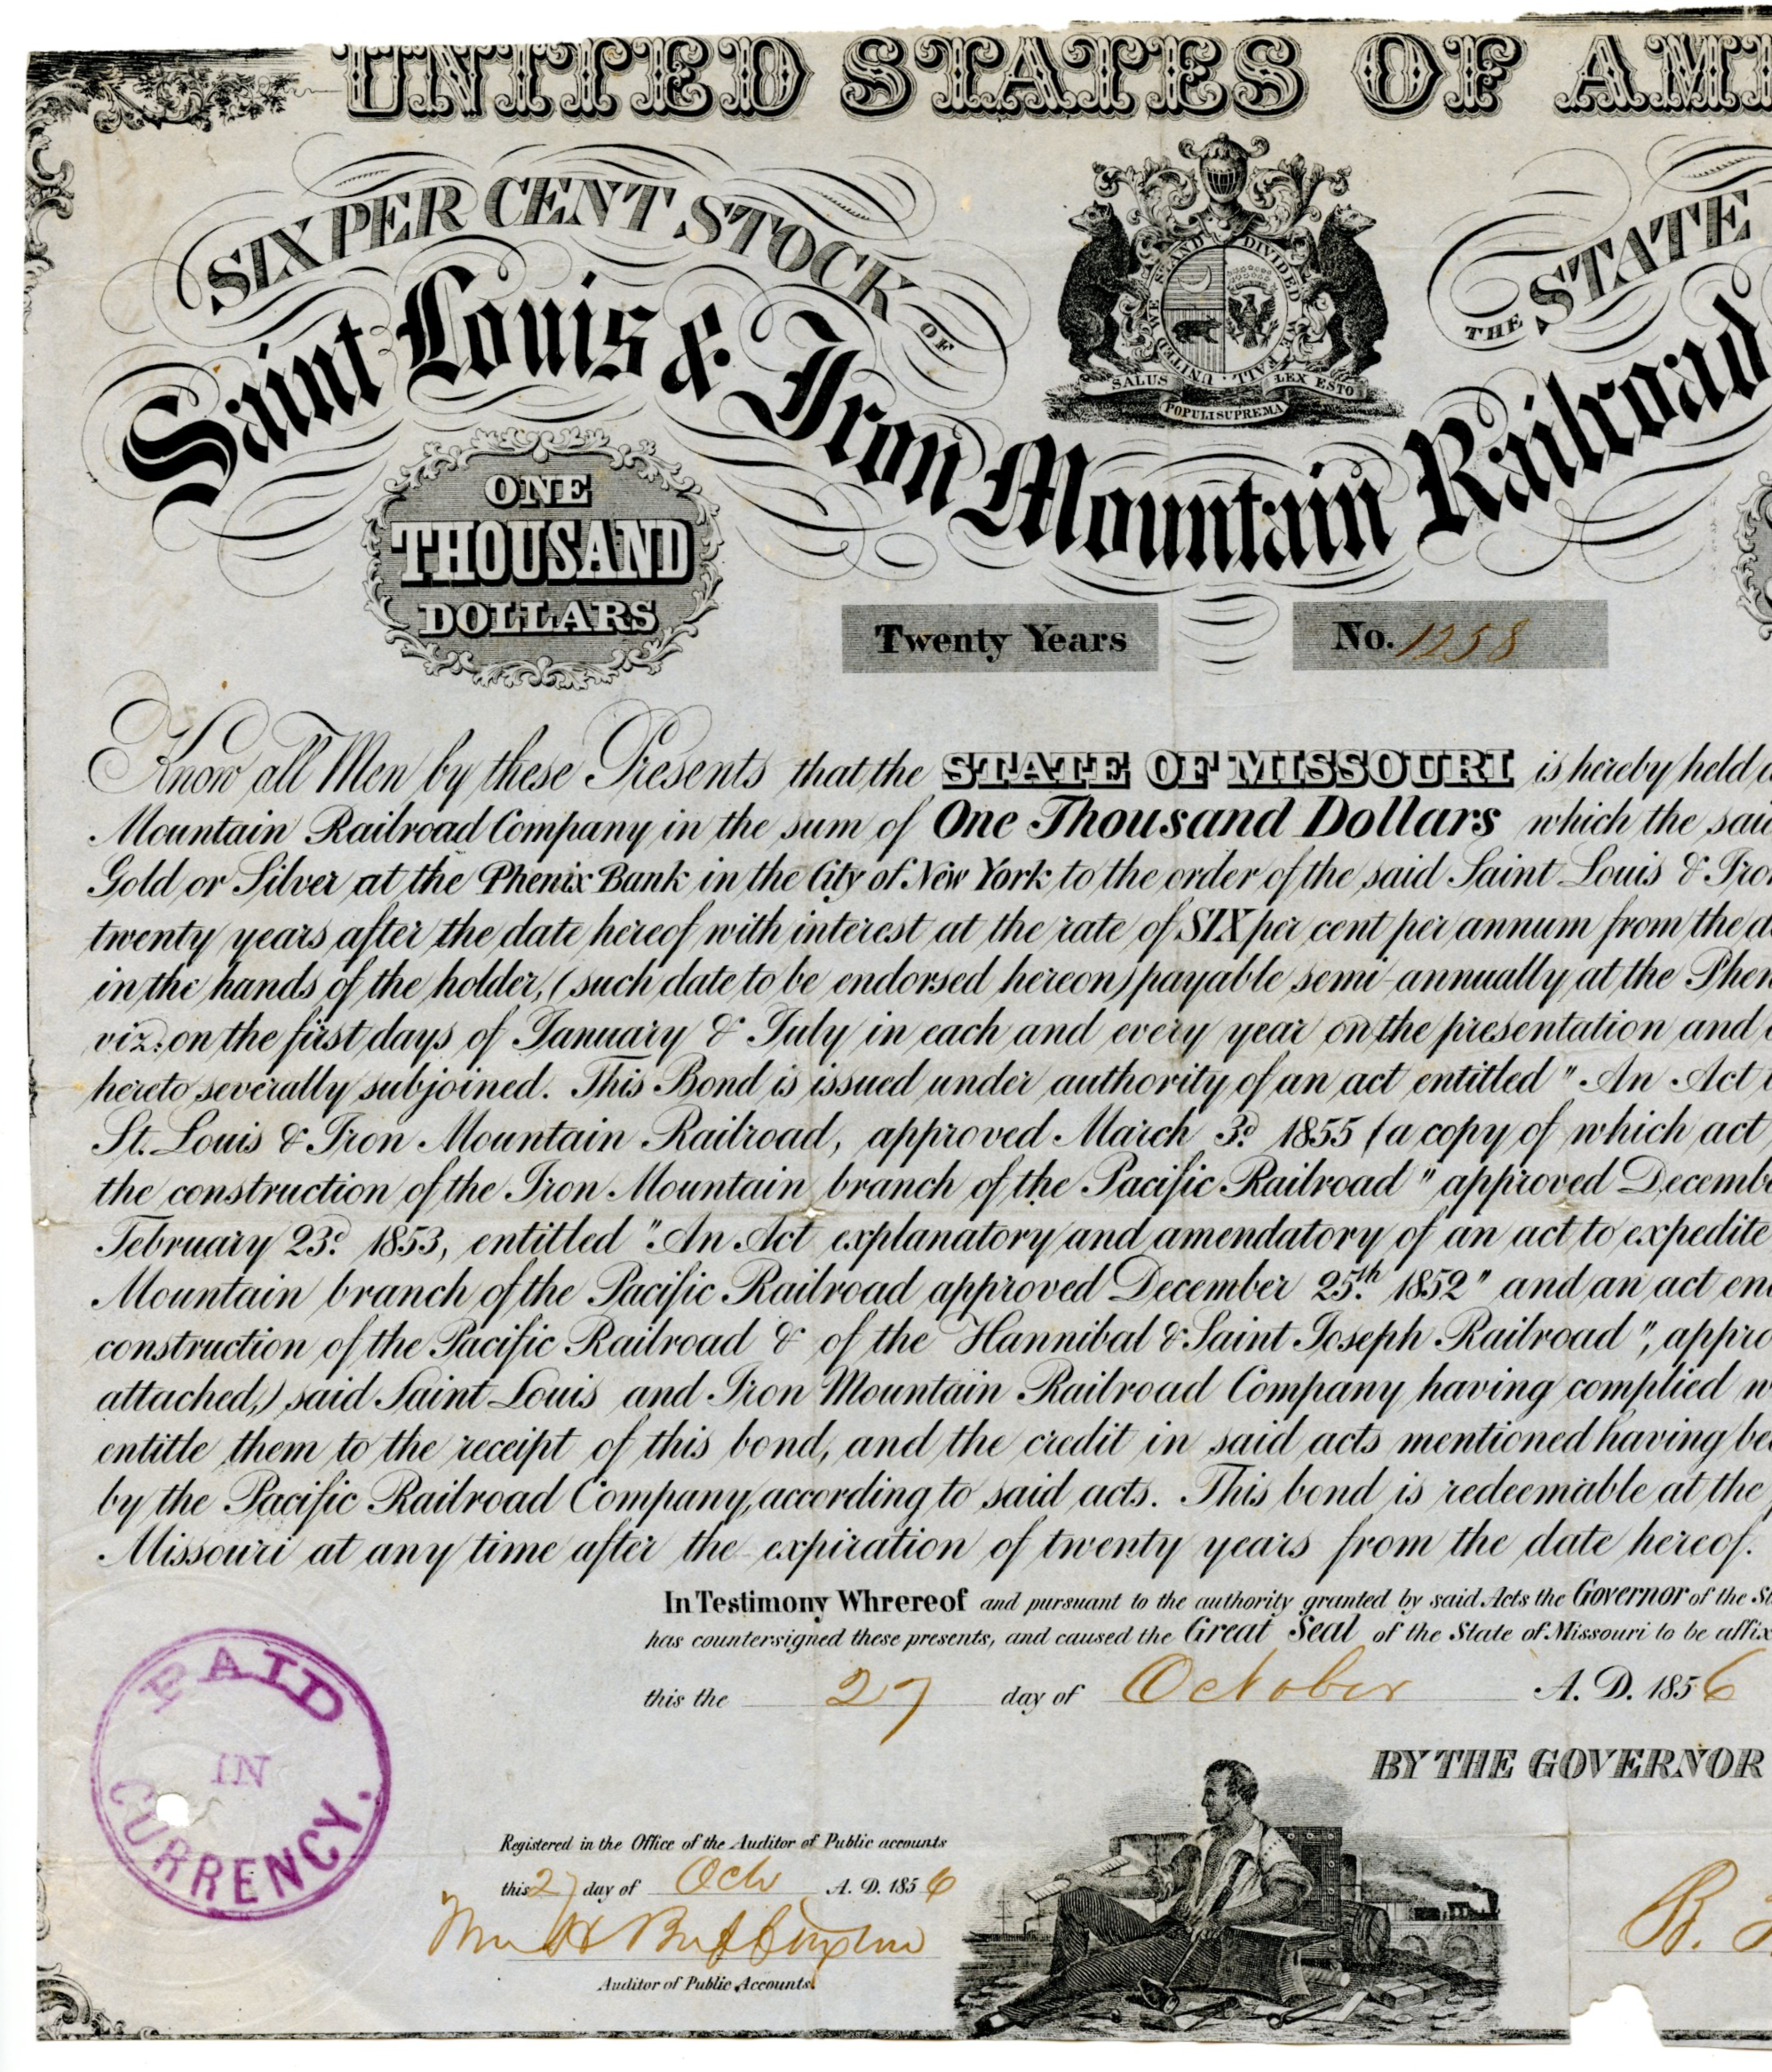 UNITED STATES OF AM
SIX PER CENT STOCK OF
THE STATE
Saint Louis & Iron Mountain Railroad
UNITED WE STAND DIVIDED WE FALL
SALUS POPULI SUPREMA LEX ESTO
ONE
THOUSAND
DOLLARS
Twenty Years
No. 1258
Know all Men by these Presents that the STATE OF MISSOURI is hereby held
Mountain Railroad Company in the sum of One Thousand Dollars which the
Gold or Silver at the Phenix Bank in the City of New York to the order of the said Saint Louis &
twenty years after the date hereof with interest at the rate of SIX per cent per annum from the
in the hands of the holder, (such date to be endorsed hereon) payable semi-annually at the
viz: on the first days of January & July in each and every year on the presentation and
hereto severally subjoined. This Bond is issued under authority of an act entitled "An Act
St. Louis & Iron Mountain Railroad, approved March 3d. 1855 (a copy of which act
the construction of the Iron Mountain branch of the Pacific Railroad" approved
February 23d. 1853, entitled "An Act explanatory and amendatory of an act to expedite
Mountain branch of the Pacific Railroad approved December 25th. 1852" and an act
construction of the Pacific Railroad & of the Hannibal & Saint Joseph Railroad",
attached,) said Saint Louis and Iron Mountain Railroad Company having complied
entitle them to the receipt of this bond, and the credit in said acts mentioned having
by the Pacific Railroad Company, according to said acts. This bond is redeemable at the
Missouri at any time after the expiration of twenty years from the date hereof.
In Testimony Whrereof and pursuant to the authority granted by said Acts the Governor of the
has countersigned these presents, and caused the Great Seal of the State of Missouri to be
this the 27 day of October A. D. 1856
PAID
IN
CURRENCY.
BY THE GOVERNOR
Registered in the Office of the Auditor of Public accounts
this 27 day of Octr A. D. 1856
Wm H Buffington
Auditor of Public Accounts.
R.